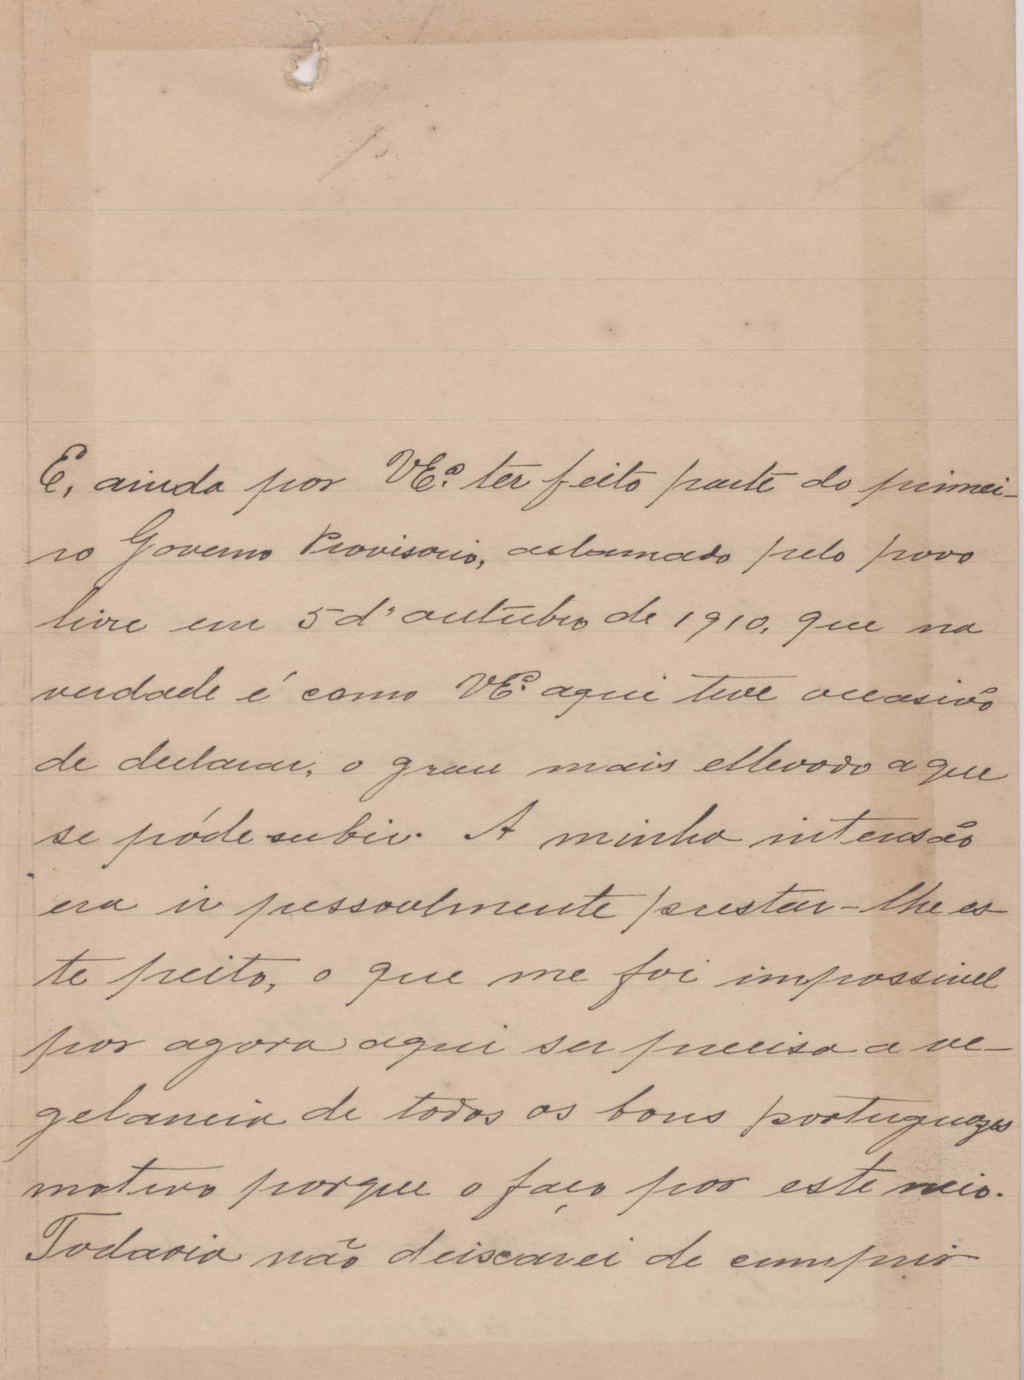 E, ainda por VEª ter feito parte do primei-
ro Governo Provisorio, aclamado pelo povo
livre em 5 d'outubro de 1910, que na
verdade é como VEª aqui teve occasião
de declarar, o grau mais ellevado a que
se póde subir. A minha intensão
era ir pessoalmente prestar-lhe es-
te preito, o que me foi impossivel
por agora aqui ser precisa a ve-
gelancia de todos os bons portuguezes
motivo porque o faço por este meio.
Todavia não deixarei de cumprir